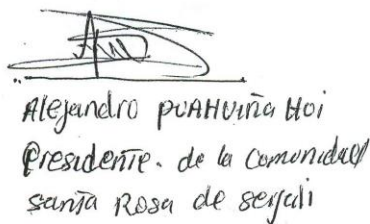 Alejandro PUAHUIÑa Hoi
Presidente. de la Comunidad
santa Rosa de serjali